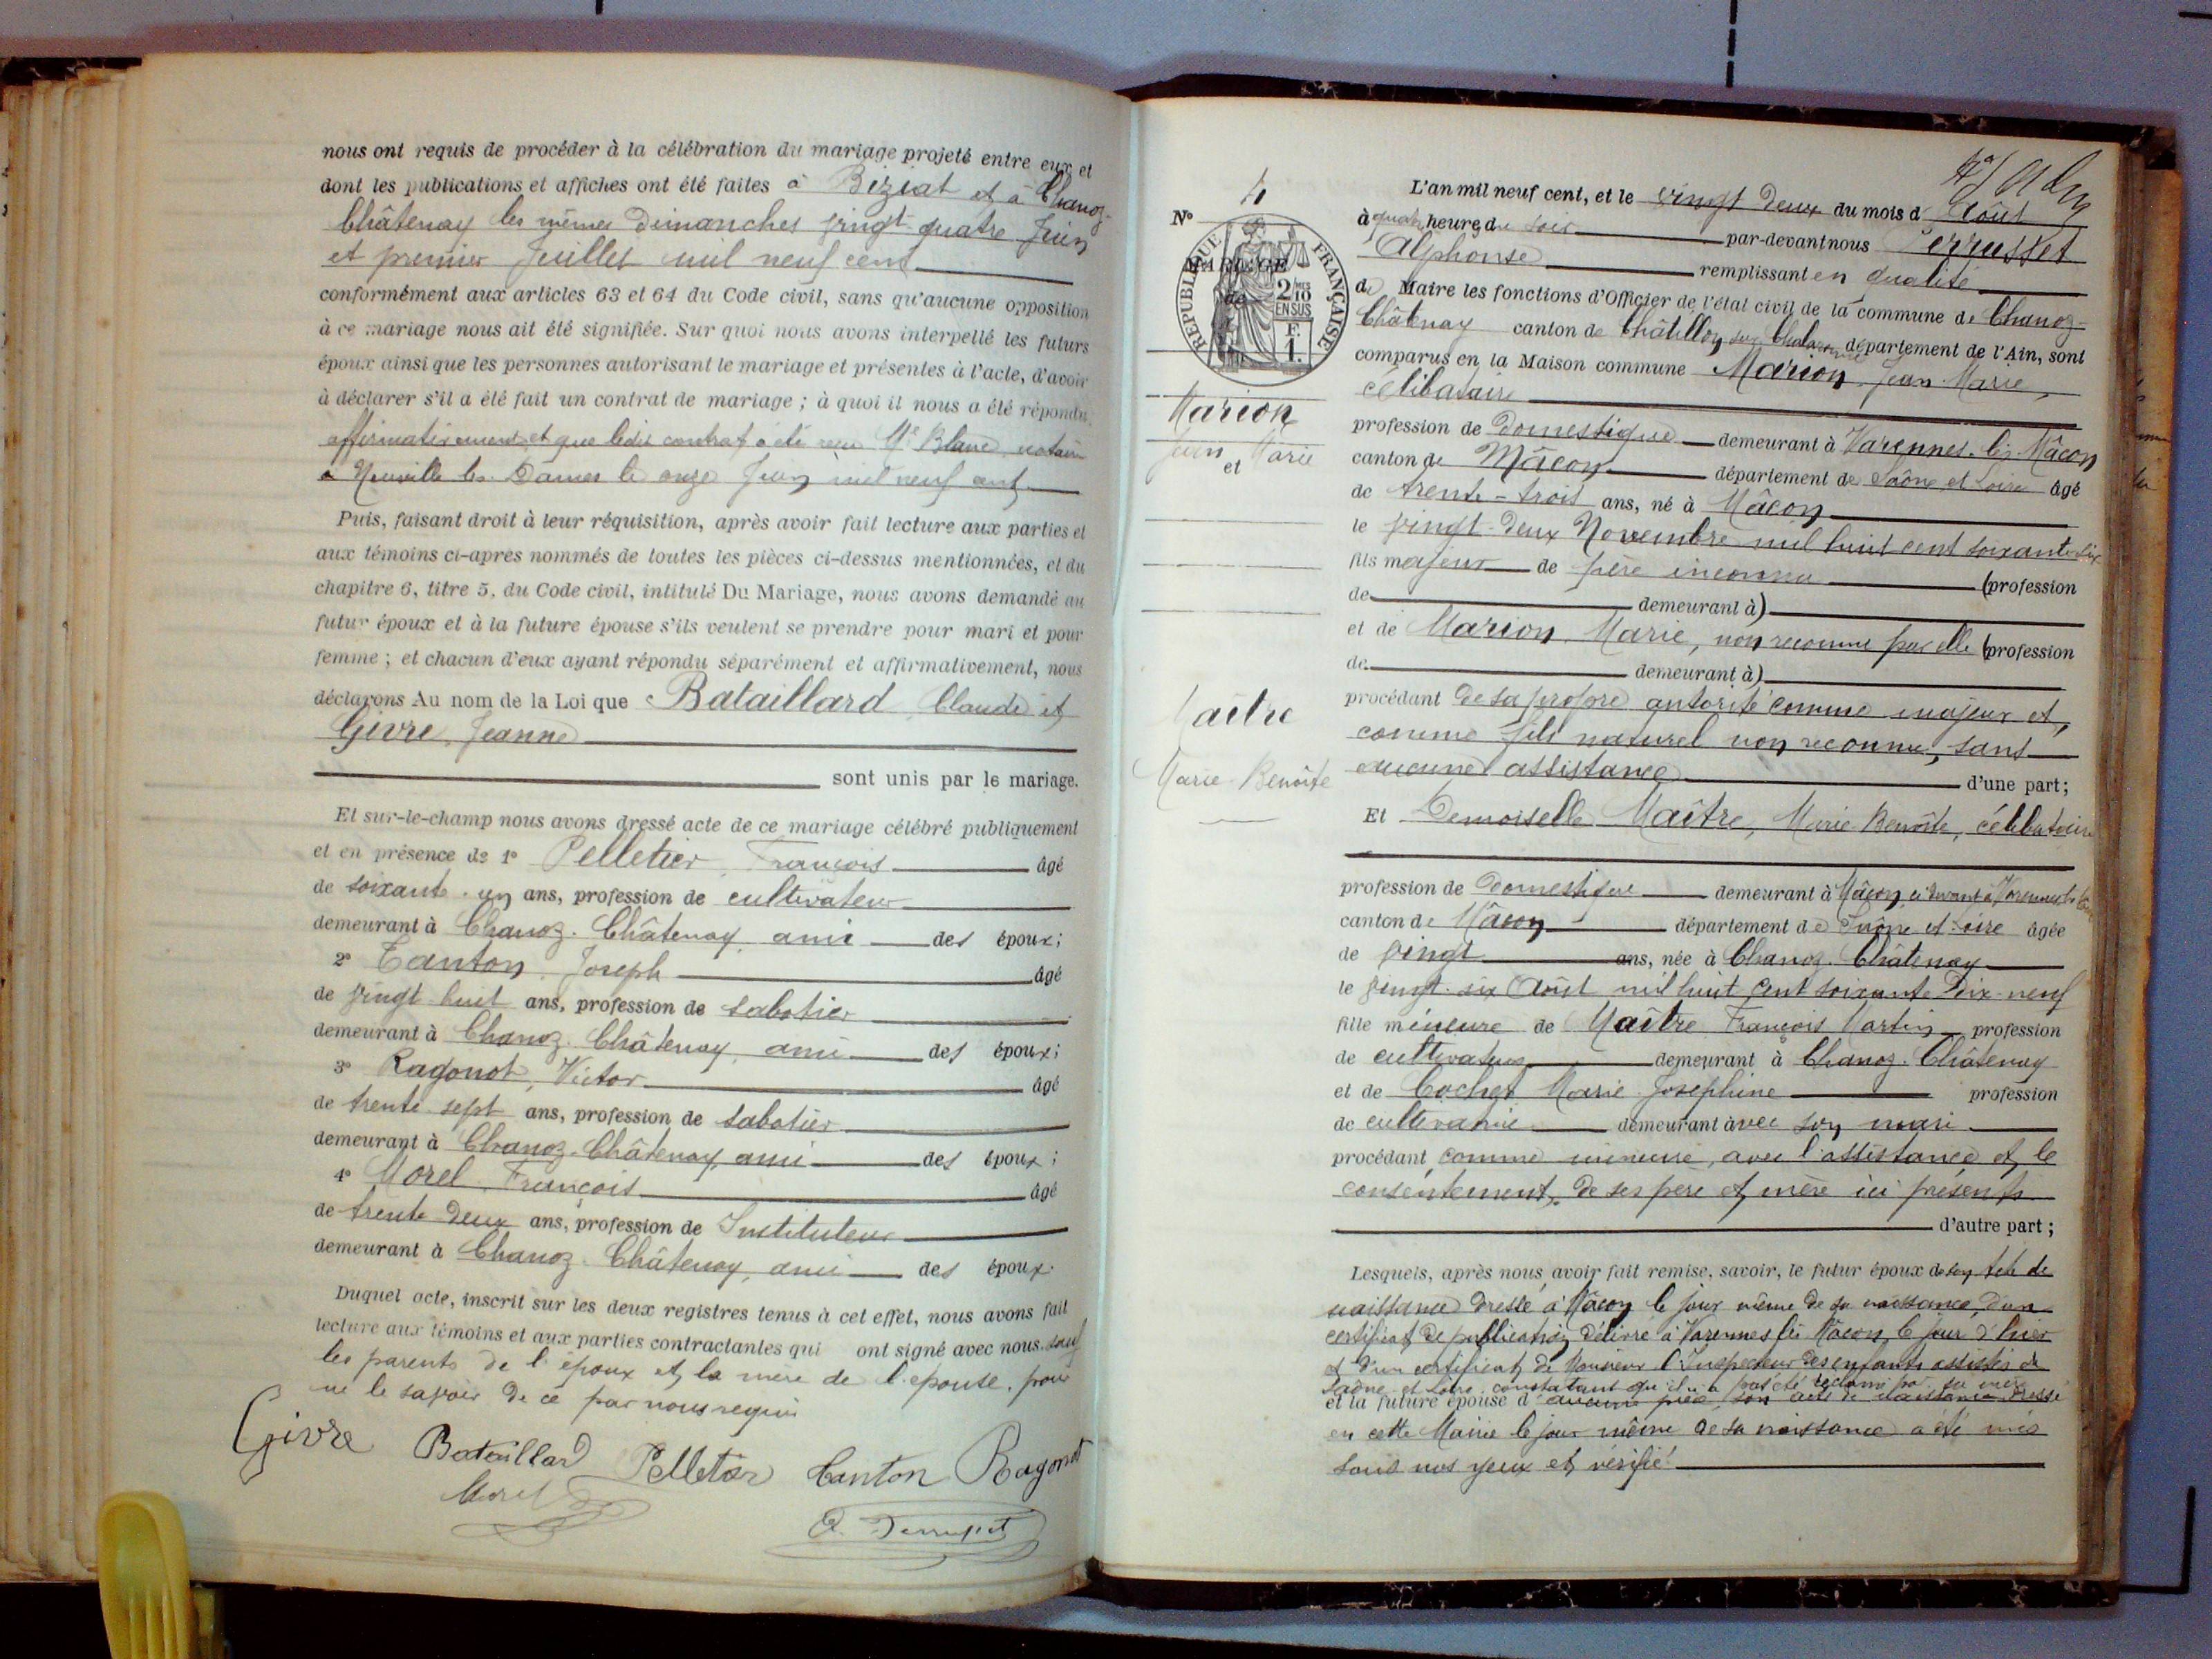 nous ont requis de procéder à la célébration du mariage projeté entre eux et
dont les publications et affiches ont été faites à Biziat et à Chanoz-
Châtenay les mêmes Dimanches vingt-quatre Juin
et premier Juillet mil neuf cent
conformément aux articles 63 et 64 du Code civil, sans qu'aucune opposition
à ce mariage nous ait été signifiée. Sur quoi nous avons interpellé les futurs
époux ainsi que les personnes autorisant le mariage et présentes à l'acte, d'avoir
à déclarer s'il a été fait un contrat de mariage ; à quoi il nous a été répondu
affirmativement et que ledit contrat a été reçu Me Blanc notaire
à Neuville les Dames le onze Juin mil neuf cent
Puis, faisant droit à leur réquisition, après avoir fait lecture aux parties et
aux témoins ci-après nommés de toutes les pièces ci-dessus mentionnées, et du
chapitre 6, titre 5, du Code civil, intitulé Du Mariage, nous avons demandé au
futur époux et à la future épouse s'ils veulent se prendre pour mari et pour
femme ; et chacun d'eux ayant répondu séparément et affirmativement, nous
déclarons Au nom de la Loi que Bataillard Claude et
Givre, Jeanne
sont unis par le mariage.
Et sur-le-champ nous avons dressé acte de ce mariage célébré publiquement
et en présence de 1° Pelletier, François âgé
de soixante-un ans, profession de cultivateur
demeurant à Chanoz-Châtenay, ami des époux ;
2° Canton, Joseph âgé
de vingt-huit ans, profession de sabotier
demeurant à Chanoz-Châtenay, ami des époux ;
3° Ragonot, Victor âgé
de trente-sept ans, profession de sabotier
demeurant à Chanoz-Châtenay, ami des époux ;
4° Morel, François âgé
de trente-deux ans, profession de Instituteur
demeurant à Chanoz-Châtenay, ami des époux.
Duquel acte, inscrit sur les deux registres tenus à cet effet, nous avons fait
lecture aux témoins et aux parties contractantes qui ont signé avec nous sauf
les parents de l'époux et la mère de l'épouse, pour
ne le savoir de ce par nous requis
Givre Bataillard Pelletier Canton Ragonot
Morel
N° 4
RÉPUBLIQUE FRANÇAISE
2/10 EN SUS
F. 1.
MARIAGE
de
Marion
Jean Marie
et
Maître
Marie-Benoîte
L'an mil neuf cent, et le vingt-deux du mois d'Août
à quatre heures du soir par-devant nous Perrusset
Alphonse remplissant en qualité
de Maire les fonctions d'Officier de l'état civil de la commune de Chanoz-
Châtenay canton de Châtillon sur Chalaronne département de l'Ain, sont
comparus en la Maison commune Marion, Jean-Marie,
célibataire
profession de domestique demeurant à Varennes-lès-Mâcon
canton de Mâcon département de Saône et Loire âgé
de trente-trois ans, né à Mâcon
le vingt-deux Novembre mil huit cent soixante-six
fils majeur de père inconnu (profession
de demeurant à)
et de Marion, Marie, non reconnu par elle (profession
de demeurant à)
procédant de sa propre autorité comme majeur et,
comme fils naturel non reconnu, sans
aucune assistance d'une part ;
Et Demoiselle Maître, Marie-Benoîte, célibataire
profession de domestique demeurant à Mâcon, ci-devant à Varennes
canton de Mâcon département de Saône et Loire âgée
de vingt ans, née à Chanoz-Châtenay
le vingt-six Août mil huit cent soixante-dix-neuf
fille mineure de Maître François Martin profession
de cultivateur demeurant à Chanoz-Châtenay
et de Cochet Marie-Joséphine profession
de cultivatrice demeurant avec son mari
procédant comme mineure, avec l'assistance et le
consentement de ses père et mère ici présents
d'autre part ;
Lesquels, après nous avoir fait remise, savoir, le futur époux de son acte de
naissance dressé à Mâcon le jour même de sa naissance, d'un
certificat de publication délivré à Varennes lès Mâcon, le jour d'hier
et d'un certificat de Monsieur l'Inspecteur des enfants assistés de
Saône et Loire constatant qu'il n'a pas été réclamé par sa mère
et la future épouse d'aucune pièce, son acte de naissance dressé
en cette Mairie le jour même de sa naissance a été mis
sous nos yeux et vérifié